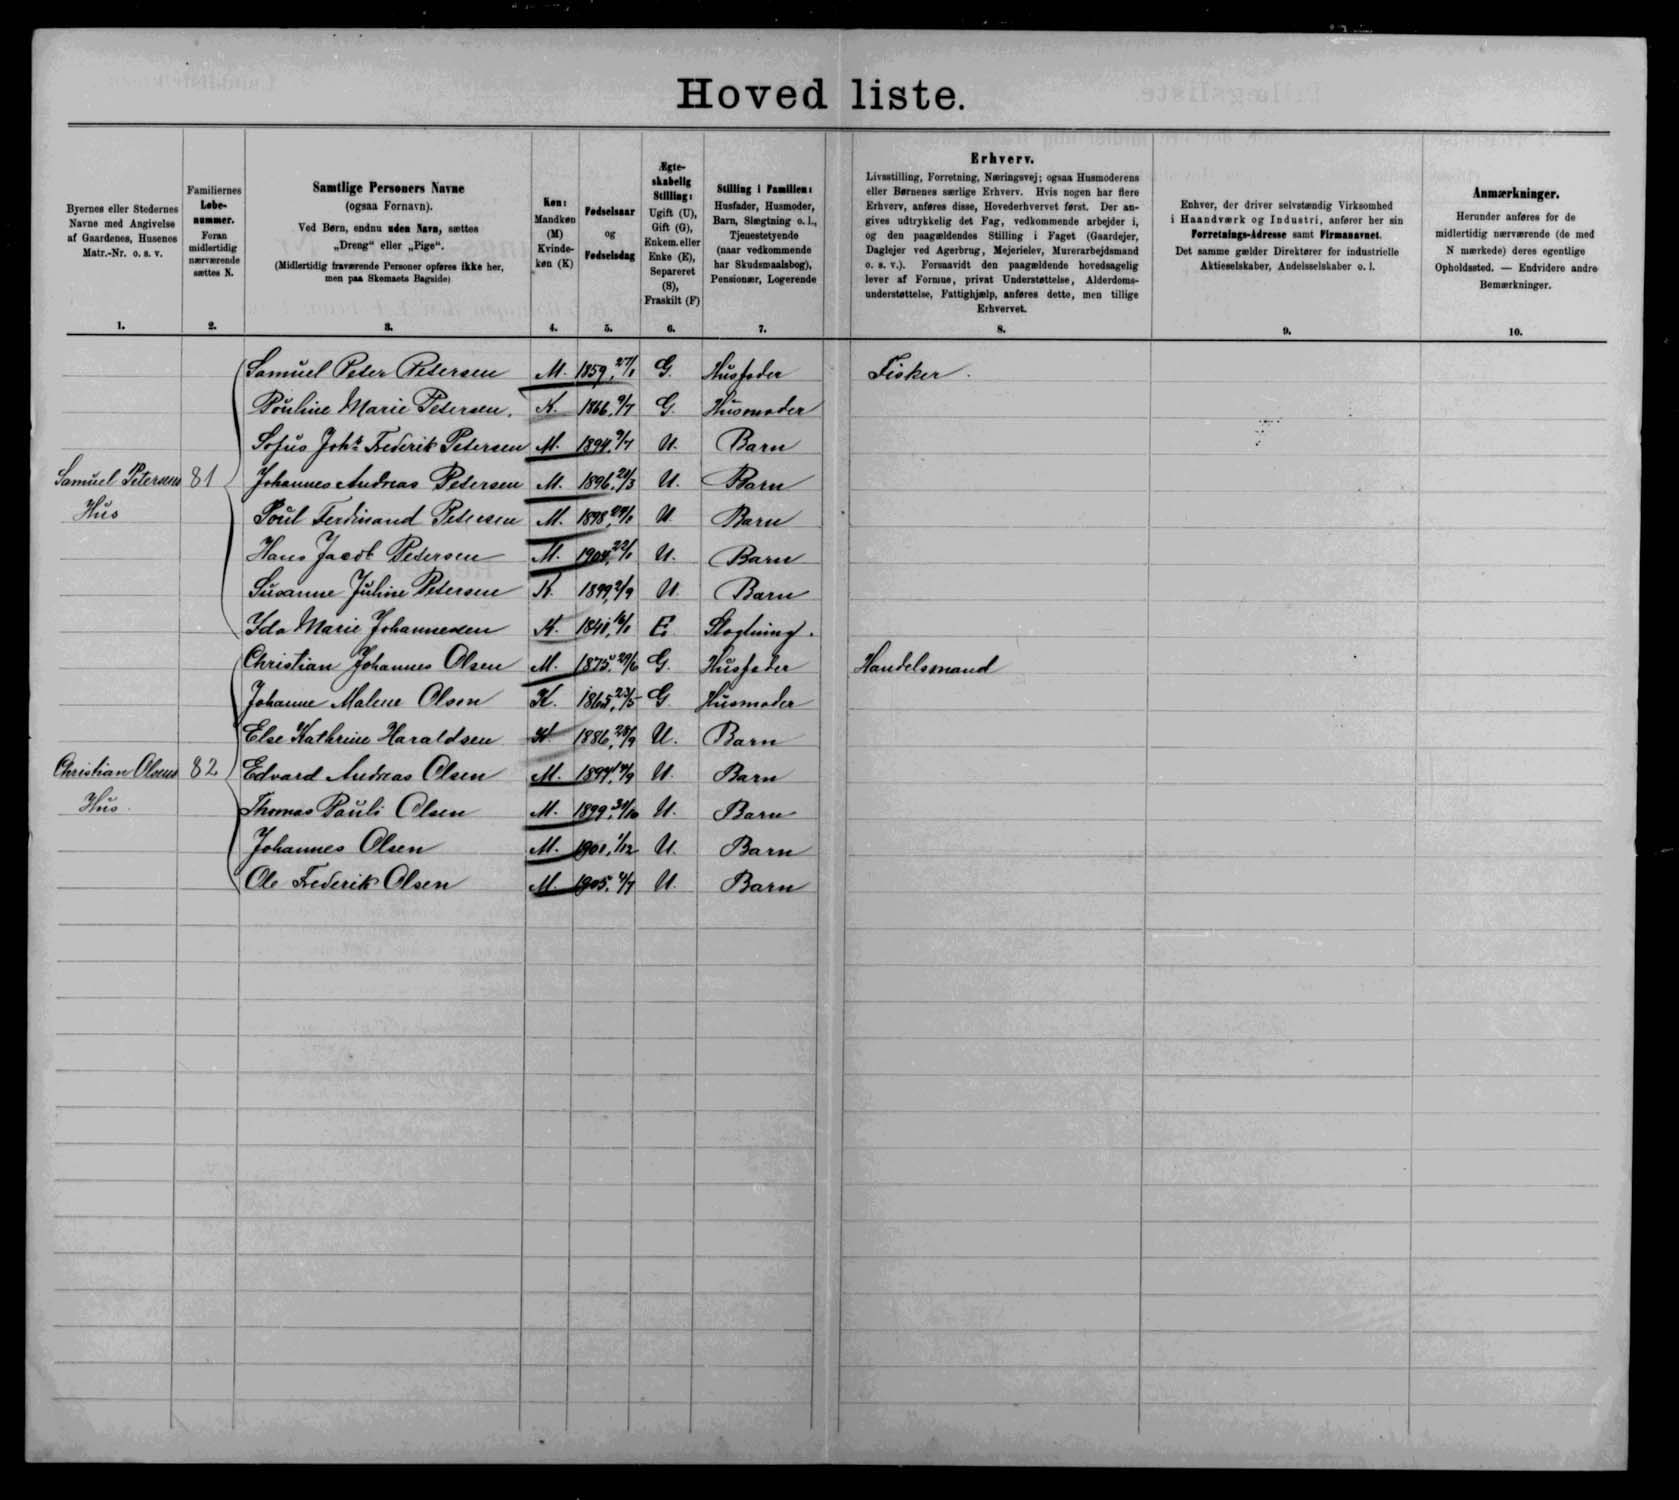 Hovedliste.
Byernes eller Stedernes
Navne med Angivelse
af Gaardenes, Husenes
Matr.-Nr. o. s. v.
1.
Familiernes
Løbe-
nummer.
Foran
midlertidig
nærværende
sættes N.
2.
Samtlige Personers Navne
(ogsaa Fornavn).
Ved Børn, endnu uden Navn, sættes
„Dreng“ eller „Pige“.
(Midlertidig fraværende Personer opføres ikke her,
men paa Skemaets Bagside)
3.
Køn:
Mandkøn
(M)
Kvinde-
køn (K)
4.
Fødselsaar
og
Fødselsdag
5.
Ægte-
skabelig
Stilling:
Ugift (U),
Gift (G),
Enkem. eller
Enke (E),
Separeret
(S),
Fraskilt (F)
6.
Stilling i Familien:
Husfader, Husmoder,
Barn, Slægtning o. l.,
Tjenestetyende
(naar vedkommende
har Skudsmaalsbog),
Pensionær, Logerende
7.
Erhverv.
Livsstilling, Forretning, Næringsvej; ogsaa Husmoderens
eller Børnenes særlige Erhverv. Hvis nogen har flere
Erhverv, anføres disse, Hovederhvervet først. Der an-
gives udtrykkelig det Fag, vedkommende arbejder i,
og den paagældendes Stilling i Faget (Gaardejer,
Daglejer ved Agerbrug, Mejerielev, Murerarbejdsmand
o. s. v.). Forsaavidt den paagældende hovedsagelig
lever af Formue, privat Understøttelse, Alderdoms-
understøttelse, Fattighjælp, anføres dette, men tillige
Erhvervet.
8.
Enhver, der driver selvstændig Virksomhed
i Haandværk og Industri, anfører her sin
Forretnings-Adresse samt Firmanavnet.
Det samme gælder Direktører for industrielle
Aktieselskaber, Andelsselskaber o. l.
9.
Anmærkninger.
Herunder anføres for de
midlertidig nærværende (de med
N mærkede) deres egentlige
Opholdssted. — Endvidere andre
Bemærkninger.
10.
Samuel Peter Petersen M. 1859, 27/1 G. Husfader Fisker.
Pouline Marie Petersen. K. 1866, 9/7 G. Husmoder
Sofus Johs Frederik Petersen M. 1894, 9/7 U. Barn
Samuel Petersens 81 Johannes Andreas Petersen M. 1896, 24/3 U. Barn
Hus Poul Ferdinand Petersen M. 1898, 29/1 U. Barn
Hans Jacob Petersen M. 1904, 22/1 U. Barn
Susanne Juline Petersen K. 1899, 2/9 U. Barn
Ida Marie Johannesen K. 1841, 16/1 E. Slægtning.
Christian Johannes Olsen M. 1875, 29/6 G. Husfader Handelsmand
Johanne Malene Olsen K. 1865, 23/5 G. Husmoder
Else Kathrine Haraldsen K. 1886, 28/9 U. Barn
Christian Olsens 82 Edvard Andreas Olsen M. 1894, 14/9 U. Barn
Hus. Thomas Pauli Olsen M. 1899, 30/10 U. Barn
Johannes Olsen M. 1901, 1/12 U. Barn
Ole Frederik Olsen M. 1905, 4/7 U. Barn